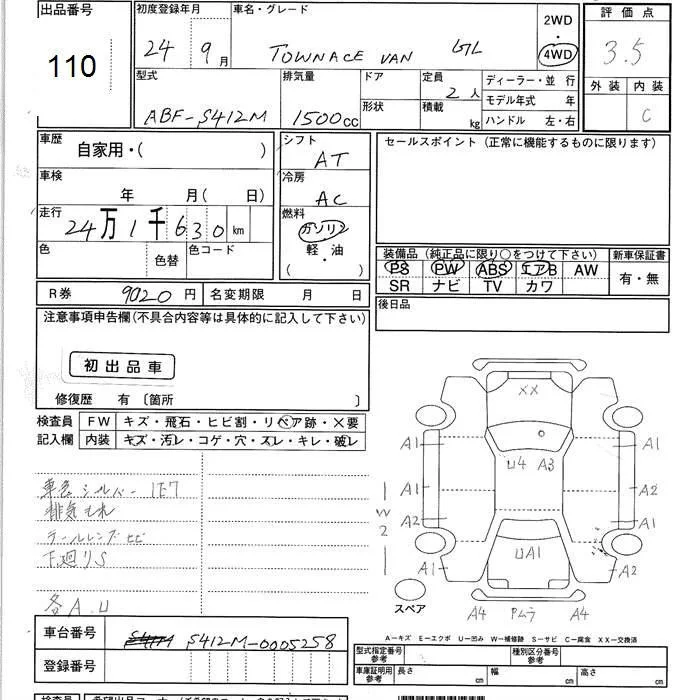 出品番号
110
初度登録年月
24 9月
車名・グレード
TOWNACE VAN GL
2WD
・
4WD
評価点
3.5
外装 内装
C
型式
ABF-S412M
排気量
1500cc
ドア
形状
定員
2人
積載
kg
ディーラー・並行
モデル年式 年
ハンドル 左・右
車歴
自家用・( )
シフト
AT
セールスポイント (正常に機能するものに限ります)
車検
年 月( 日)
冷房
AC
走行
24万1千630km
燃料
ガソリン
軽・油
( ・ )
色
色替
色コード
装備品 (純正品に限り○をつけて下さい)
新車保証書
PS PW ABS エアB AW
SR ナビ TV カワ
有・無
R券 9020円
名変期限 月 日
後日品
注意事項申告欄(不具合内容等は具体的に記入して下さい)
初出品車
修復歴 有 〔箇所 〕
検査員
記入欄
FW キズ・飛石・ヒビ割・リペア跡・×要
内装 キズ・汚レ・コゲ・穴・スレ・キレ・破レ
車色シルバー 1E7
排気もれ
テールレンズヒビ
下廻りS
各A.U
XX
A1 U4 A3 A1
A1 A2
W2
A2 A1
A1 UA1 A2
スペア
A4 Pムラ A4
A-キズ E-エクボ U-凹み W-補修跡 S-サビ C-腐食 XX-交換済
車台番号
S412M-0005258
登録番号
型式指定番号
参考
種別区分番号
参考
車庫証明用
参考
長さ cm 幅 cm 高さ cm